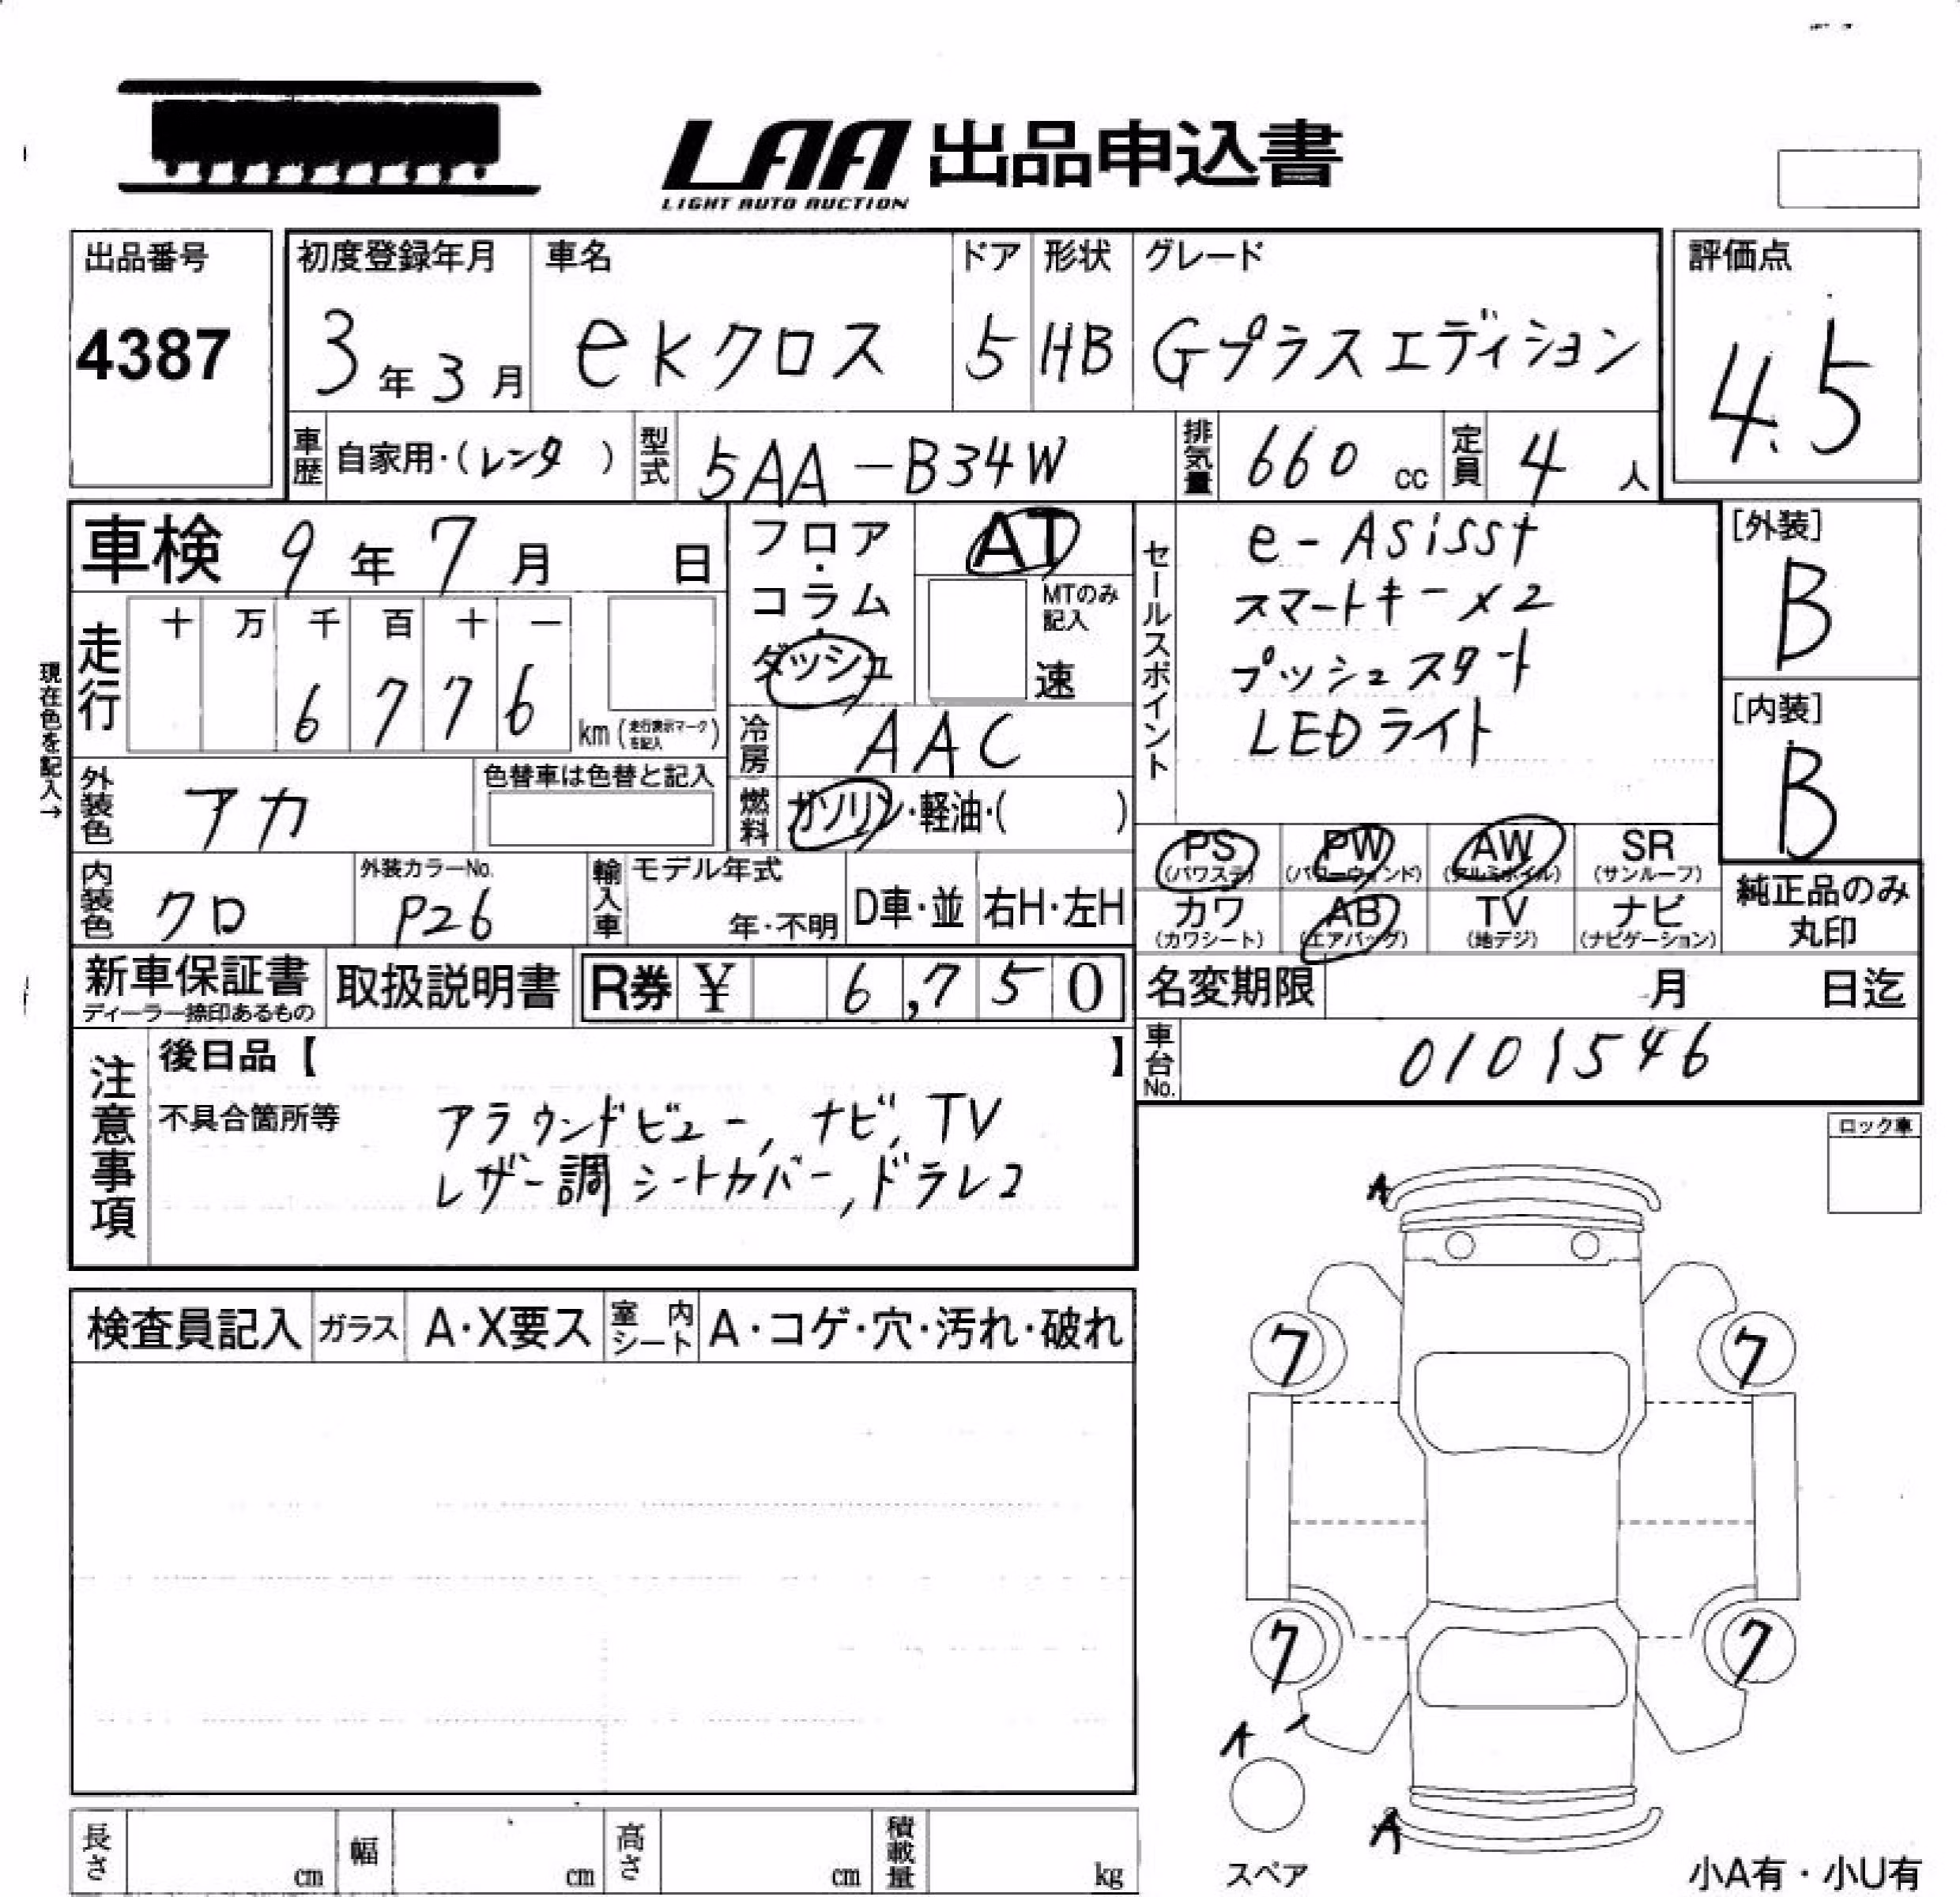 LAA 出品申込書
LIGHT AUTO AUCTION
出品番号
4387
初度登録年月 車名 ドア 形状 グレード
3年3月 ekクロス 5 HB Gプラスエディション
評価点
4.5
車歴 自家用・(レンタ) 型式 5AA-B34W 排気量 660cc 定員 4人
車検 9年7月 日
フロア・コラム・ダッシュ
AT
MTのみ記入
速
セールスポイント
e-Asisst
スマートキー×2
プッシュスタート
LEDライト
[外装]
B
[内装]
B
現在色を記入→
走行 十 万 千 百 十 一
6 7 7 6
km(走行表示マークを記入)
冷房 AAC
外装色 アカ
色替車は色替と記入
燃料 ガソリン・軽油・( )
PS PW AW SR
(パワステ) (パワーウィンド) (アルミホイル) (サンルーフ)
カワ AB TV ナビ
(カワシート) (エアバッグ) (地デジ) (ナビゲーション)
純正品のみ
丸印
内装色 クロ
外装カラーNo.
P26
輸入車 モデル年式
年・不明
D車・並 右H・左H
新車保証書
ディーラー捺印あるもの
取扱説明書
R券 ¥ 6,750
名変期限 月 日迄
車台No. 0101546
注意事項
後日品【 】
不具合箇所等
アラウンドビュー, ナビ, TV
レザー調シートカバー, ドラレコ
ロック車
A
検査員記入 ガラス A・X要ス 室内シート A・コゲ・穴・汚れ・破れ
7 7
7 7
A
A
スペア
長さ cm 幅 cm 高さ cm 積載量 kg
小A有・小U有